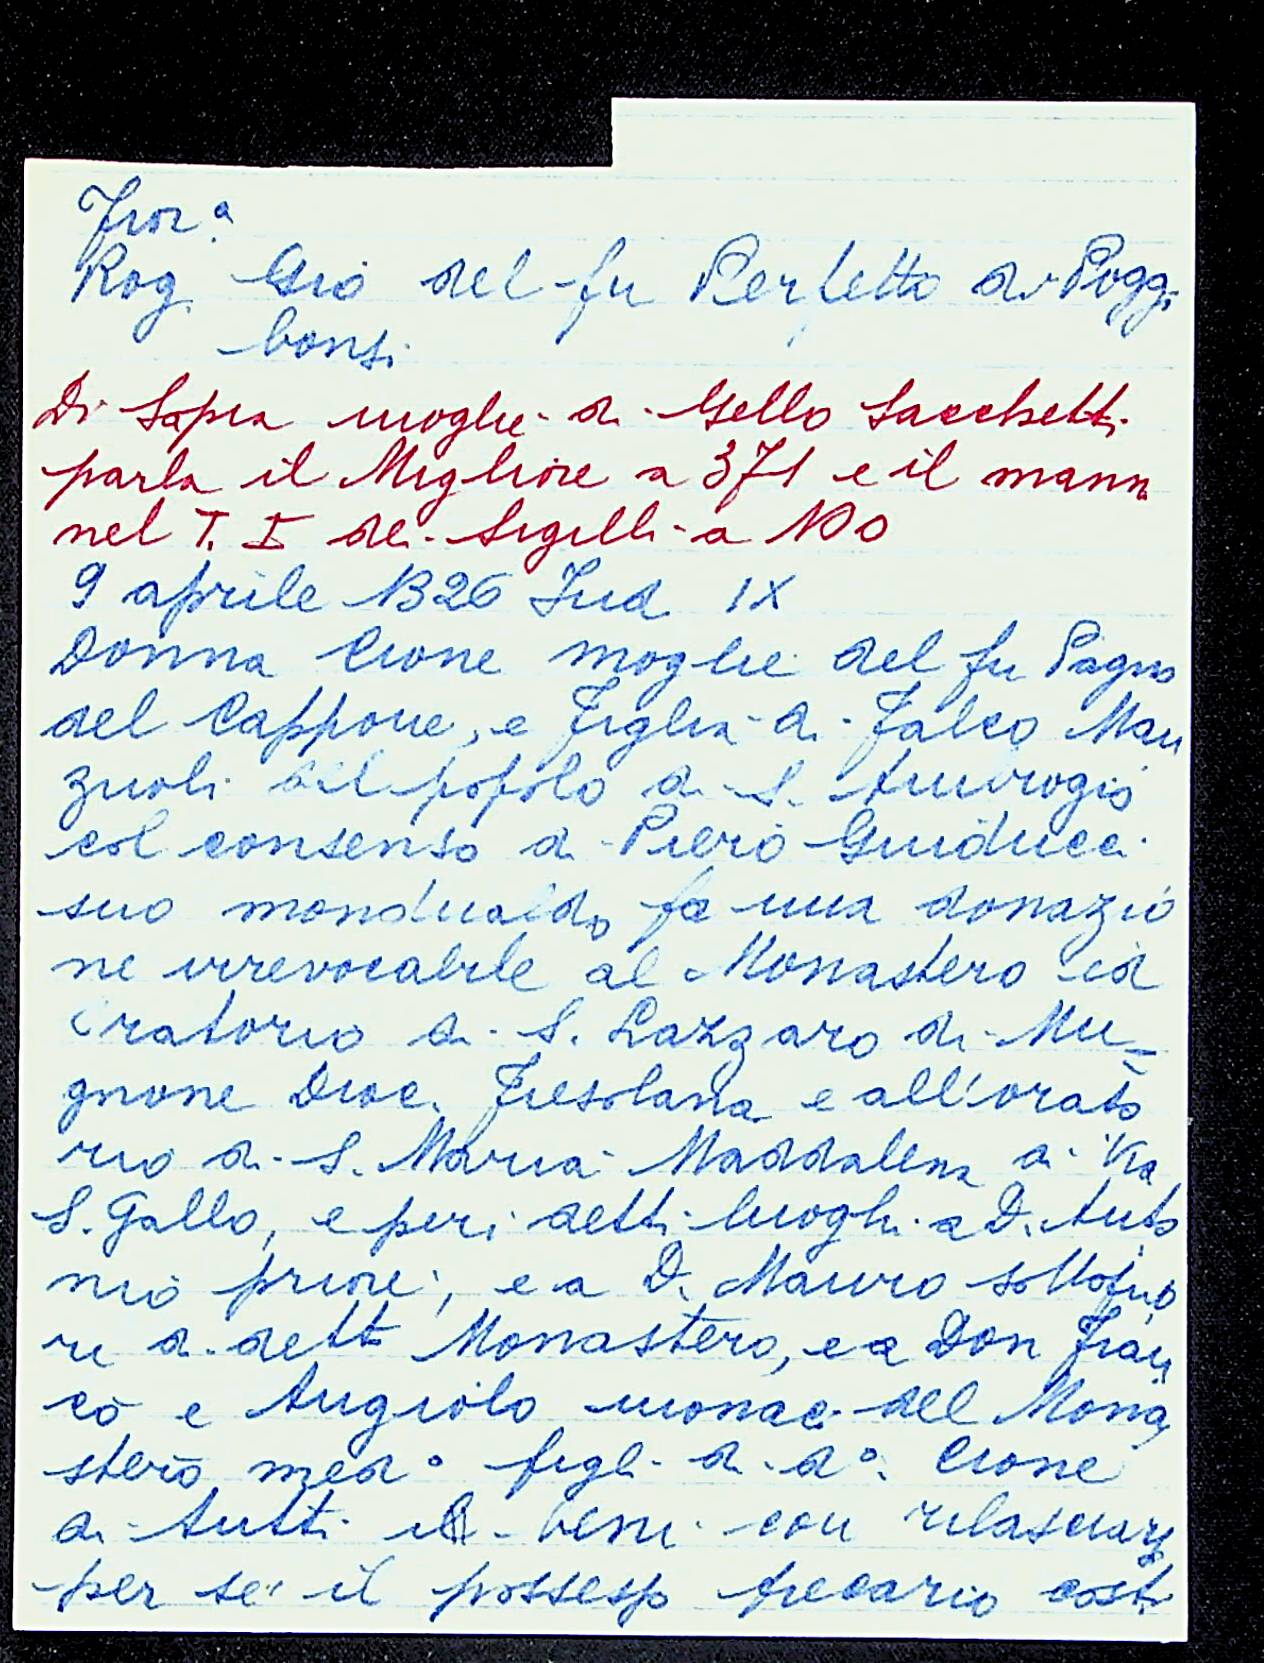 Fior.ª
Rog. Gio del fu Perfetto di Poggi
bonsi
Di Sapia moglie di Gello Sacchetti
parla il Migliore a 371 e il mann
nel T. I de Sigilli a 100
9 aprile 1326 Ind IX
Donna Cione moglie del fu Pagno
del Cappone, e figlia di Falco Man
zuoli del popolo di S. Ambrogio
col consenso di Piero Guiducci
suo mondualdo fa una donazio
ne irrevocabile al Monastero ed
Oratorio di S. Lazzaro di Mu=
gnone Dioc. Fiesolana e all'orato
rio di S. Maria Maddalena di Via
S. Gallo, e per i detti luoghi a D. Anto
nio priore, e a D. Mauro sottoprio
re di dett Monastero, e a Don Fran
co e Angiolo monac del Mona
stero med° figli di d.ª Cione
di tutti i beni con rilasciarz
per se il possesso precario cost